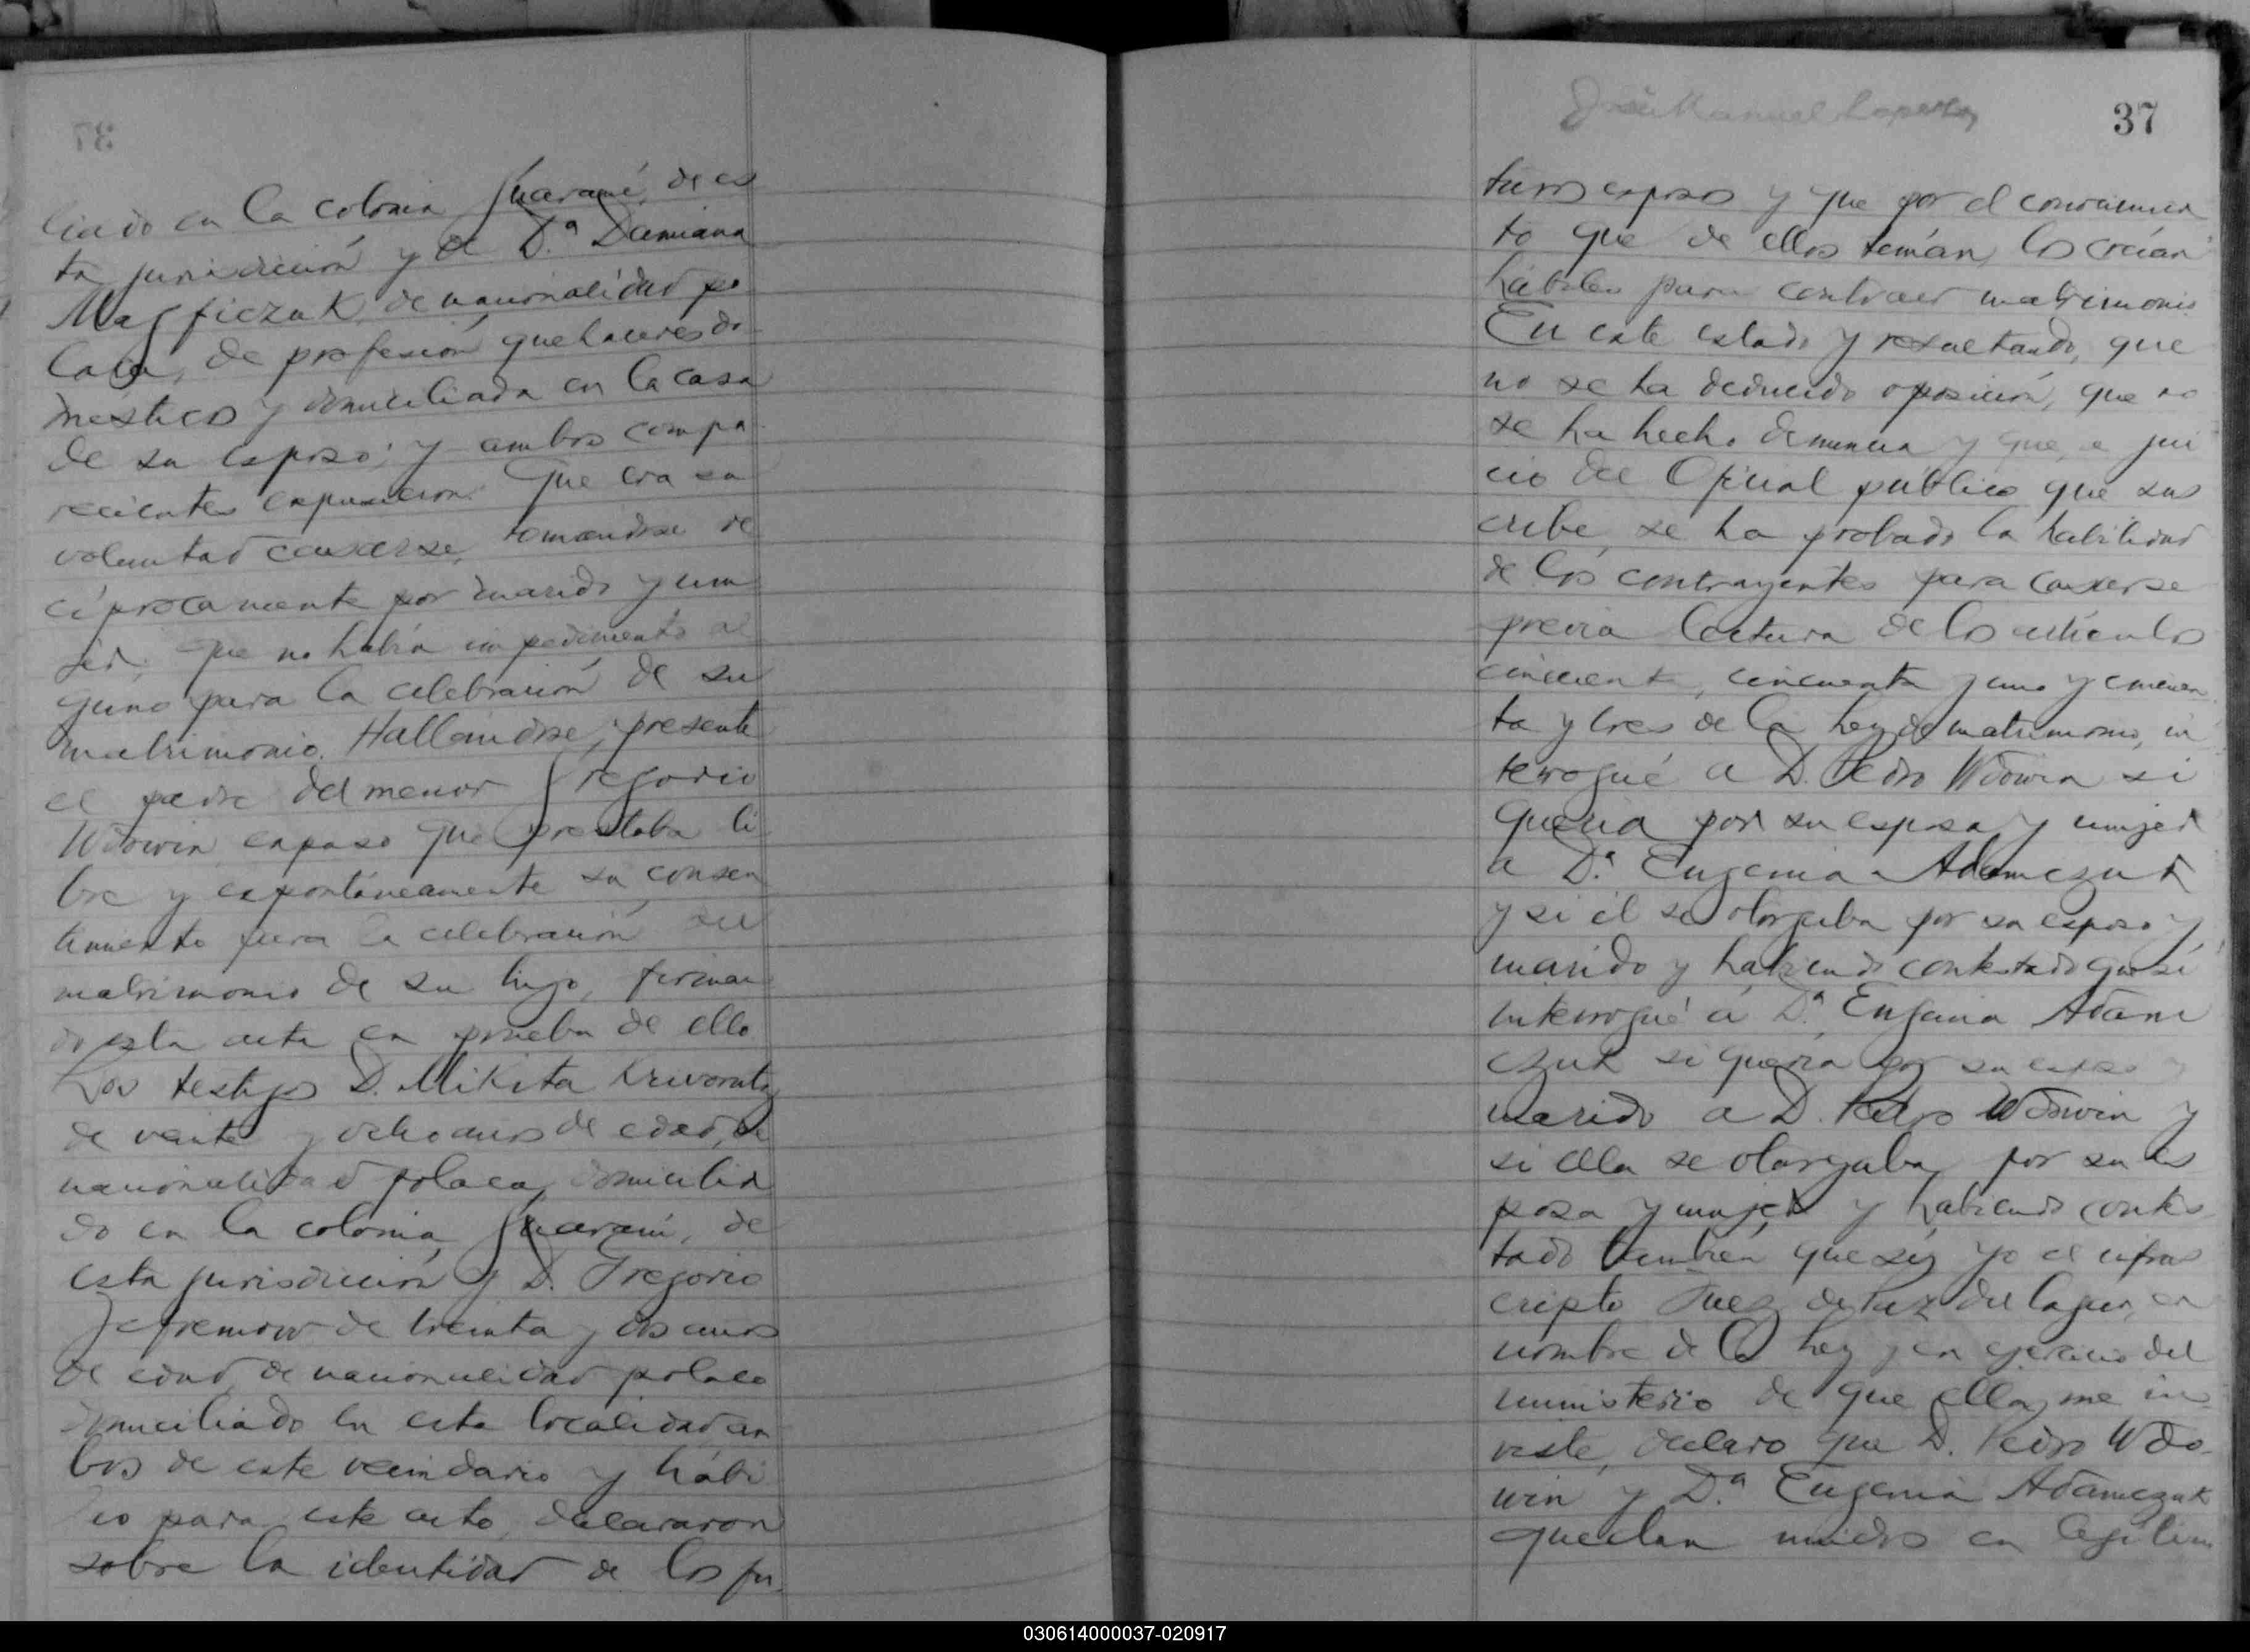 liado en la colonia Guaraní, de es
ta jurisdicción y de D.ª Damiana
de nacionalidad po
laca, de profesión quehaceres do
mésticos y domiciliada en la casa
de su esposo; y ambos compa
recientes expusieron: Que era su
voluntad casarse, tomándose re
cíprocamente por marido y mu
jer, que no había impedimento al
guno para la celebración de su
matrimonio. Hallándose presente
el padre del menor Gregorio
Wdowin expuso que prestaba li
bre y espontáneamente su consen
timiento para la celebración del
matrimonio de su hijo, firman
do esta acta en prueba de ello
Los testigos D. Mikita
de veinte y ocho años de edad, de
nacionalidad polaca, domicilia
do en la colonia Guaraní, de
esta jurisdicción y D. Gregorio
Jefremow de treinta y dos años
de edad, de nacionalidad polaco
domiciliado en esta localidad am
bos de este vecindario y hábi
les para este acto, declararon
sobre la identidad de los fu.
37
turos esposos y que por el conocimien
to que de ellos tenían, los creían
hábiles para contraer matrimonio
En este estado y resultando, que
no se ha deducido oposición, que no
se ha hecho denuncia y que, a jui
cio del Oficial público que sus
cribe, se ha probado la habilidad
de los contrayentes para casarse
previa lectura de los artículos
cincuenta, cincuenta y uno y cincuen
ta y tres de la ley de matrimonio, in
terrogué a D. Pedro Wdowin si
quería por su esposa y mujer
a D.ª Eugenia Adamczuk
y si él se otorgaba por su esposo y
marido y habiendo contestado que sí
interrogué á D.ª Eugenia Adam
czuk si quería por su esposo y
marido a D. Pedro Wdowin y
si ella se otorgaba por su es
posa y mujer y habiendo contes
tado también que sí, yo el infras
cripto Juez de Paz del lugar, en
nombre de la ley y en ejercicio del
ministerio de que ella me in
viste, declaro que D. Pedro Wdo-
win y D.ª Eugenia Adamczuk
quedan unidos en legítim
030614000037-020917